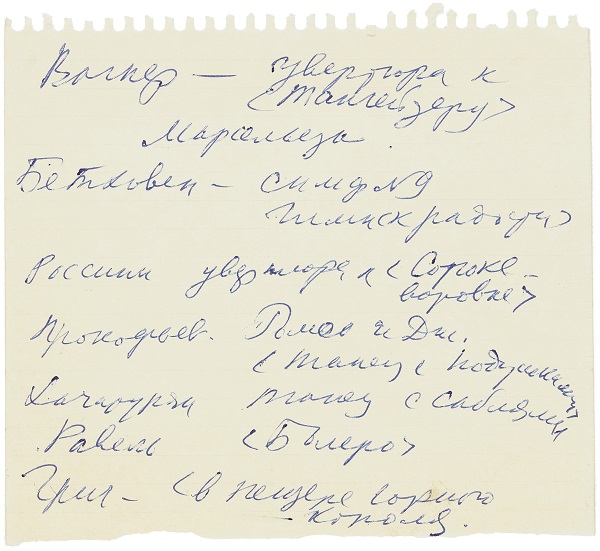 Вагнер — увертюра к
<Тангейзеру>
Марсельеза
Бетховен — симф №9
Гимн к радости>
Россини увертюра к <Сороке-
воровке>
Прокофьев. Ромео и Дж.
<Танец с подушками>
Хачатурян танец с саблями
Равель <Болеро>
Григ — <В пещере горного
короля.